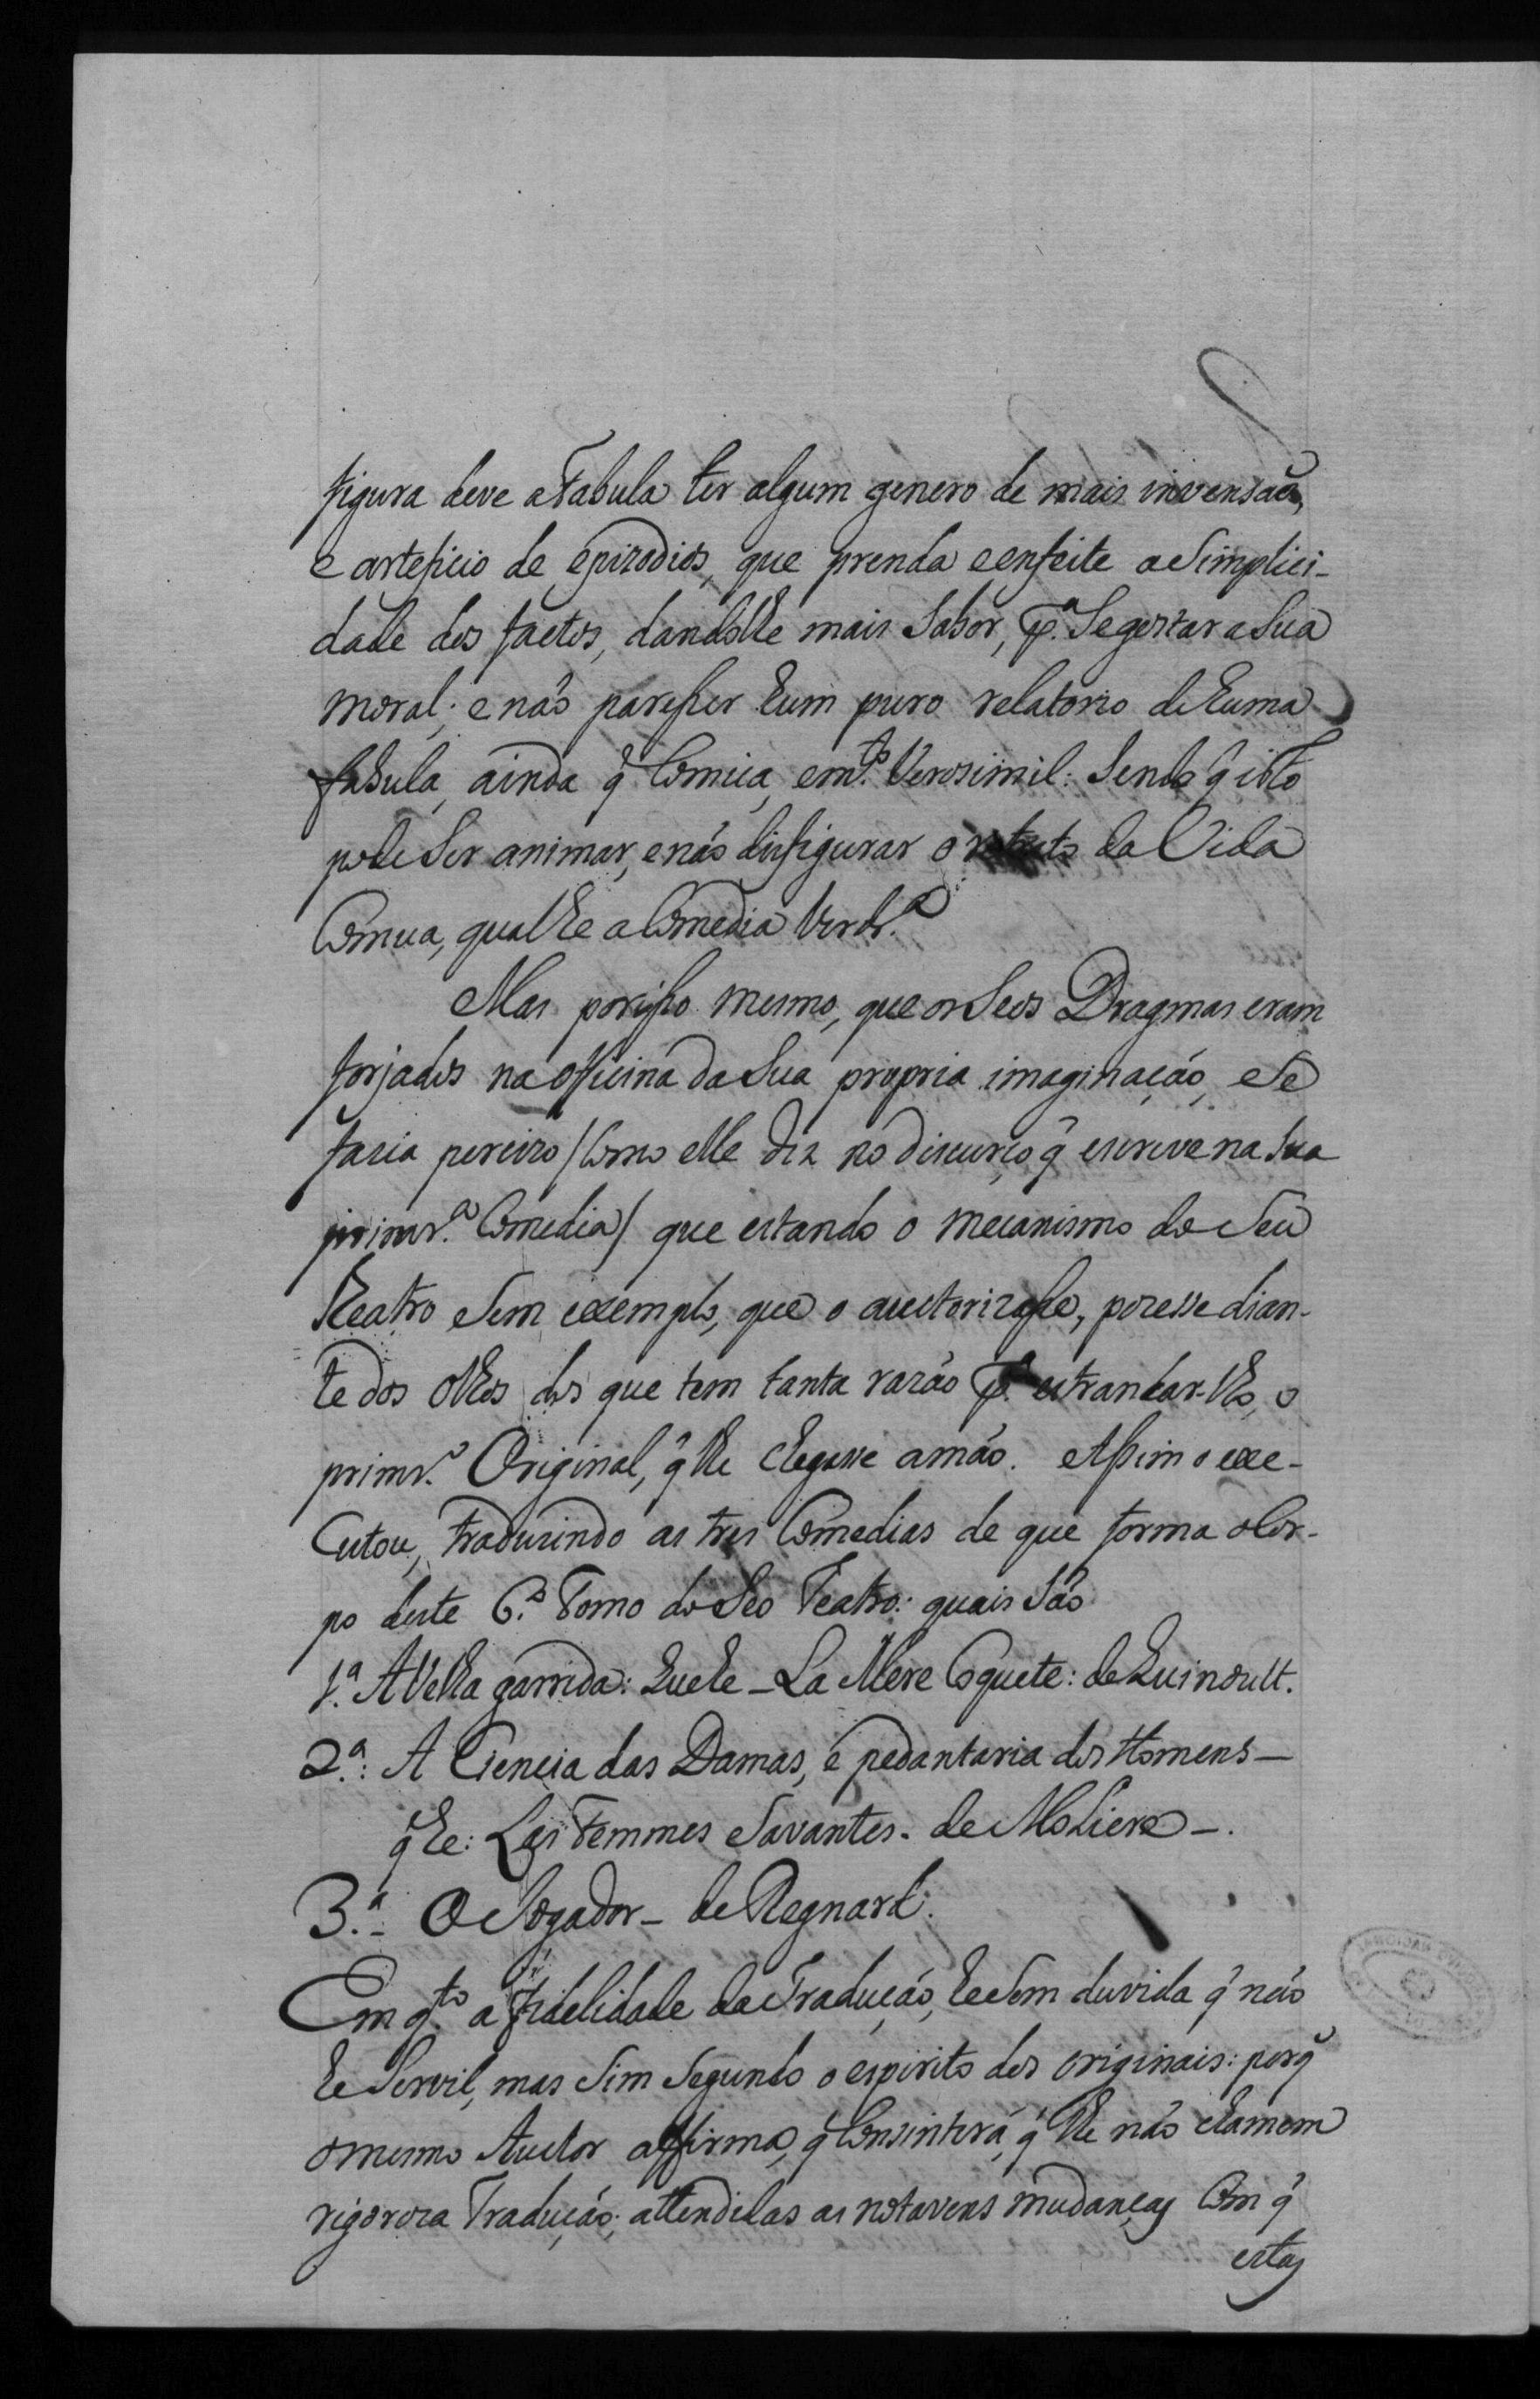 figura deve a Fabula ter algum genero de mais invensaõ,
e arteficio de epizodios, que prenda e enfeite a Simplici-
dade dos factos, dandolhe mais Sabor, pª. Se gostar a Sua
moral; e naõ paresser hum puro relatorio de huma
fabula, ainda q̃ Comica, e mto. Verosimil: Sendo q̃ isto
pode Ser animar, e naõ disfigurar o retrato da Vida
Comua, qual he a Comedia Verdrª.
Mas por isso mesmo, que os Seos Dragmas eram
forjados na officina da Sua propria imaginaçaõ, e Se
fazia percizo /como elle diz no discurço q̃ escreve na Sua
primrª. Comedia/ que estando o mecanismo do Seu
Theatro Sem exemplo, que o auctorizasse, pozesse dian-
te dos olhos dos que tem tanta razaõ pª. estranhar-lho, o
primrº. Original, q̃ lhe chegasse a maõ. Assim o exe-
cutou, traduzindo as tres Comedias de que forma o Cor-
po deste 6.º Tomo do Seo Teatro: quais Saõ
1.ª A Velha garrida: que he _ La Mere Coquete: de Quinoult.
2.ª: A Ciencia das Damas, e pedantaria dos Homens _
q̃ he: Les Femmes Savantes. de Moliere _.
3.ª: O Jogador _ de Regnard.
Em qto. a Fidelidade da Traduçaõ, he Sem duvida q̃ naõ
he Servil, mas Sim Segundo o espirito dos originais: porq̃
o mesmo Auctor affirma, q̃ Consintirá, q̃ lhe naõ chamem
rigoroza Traduçaõ; attendidas as notavens mudanças Com q̃
estas